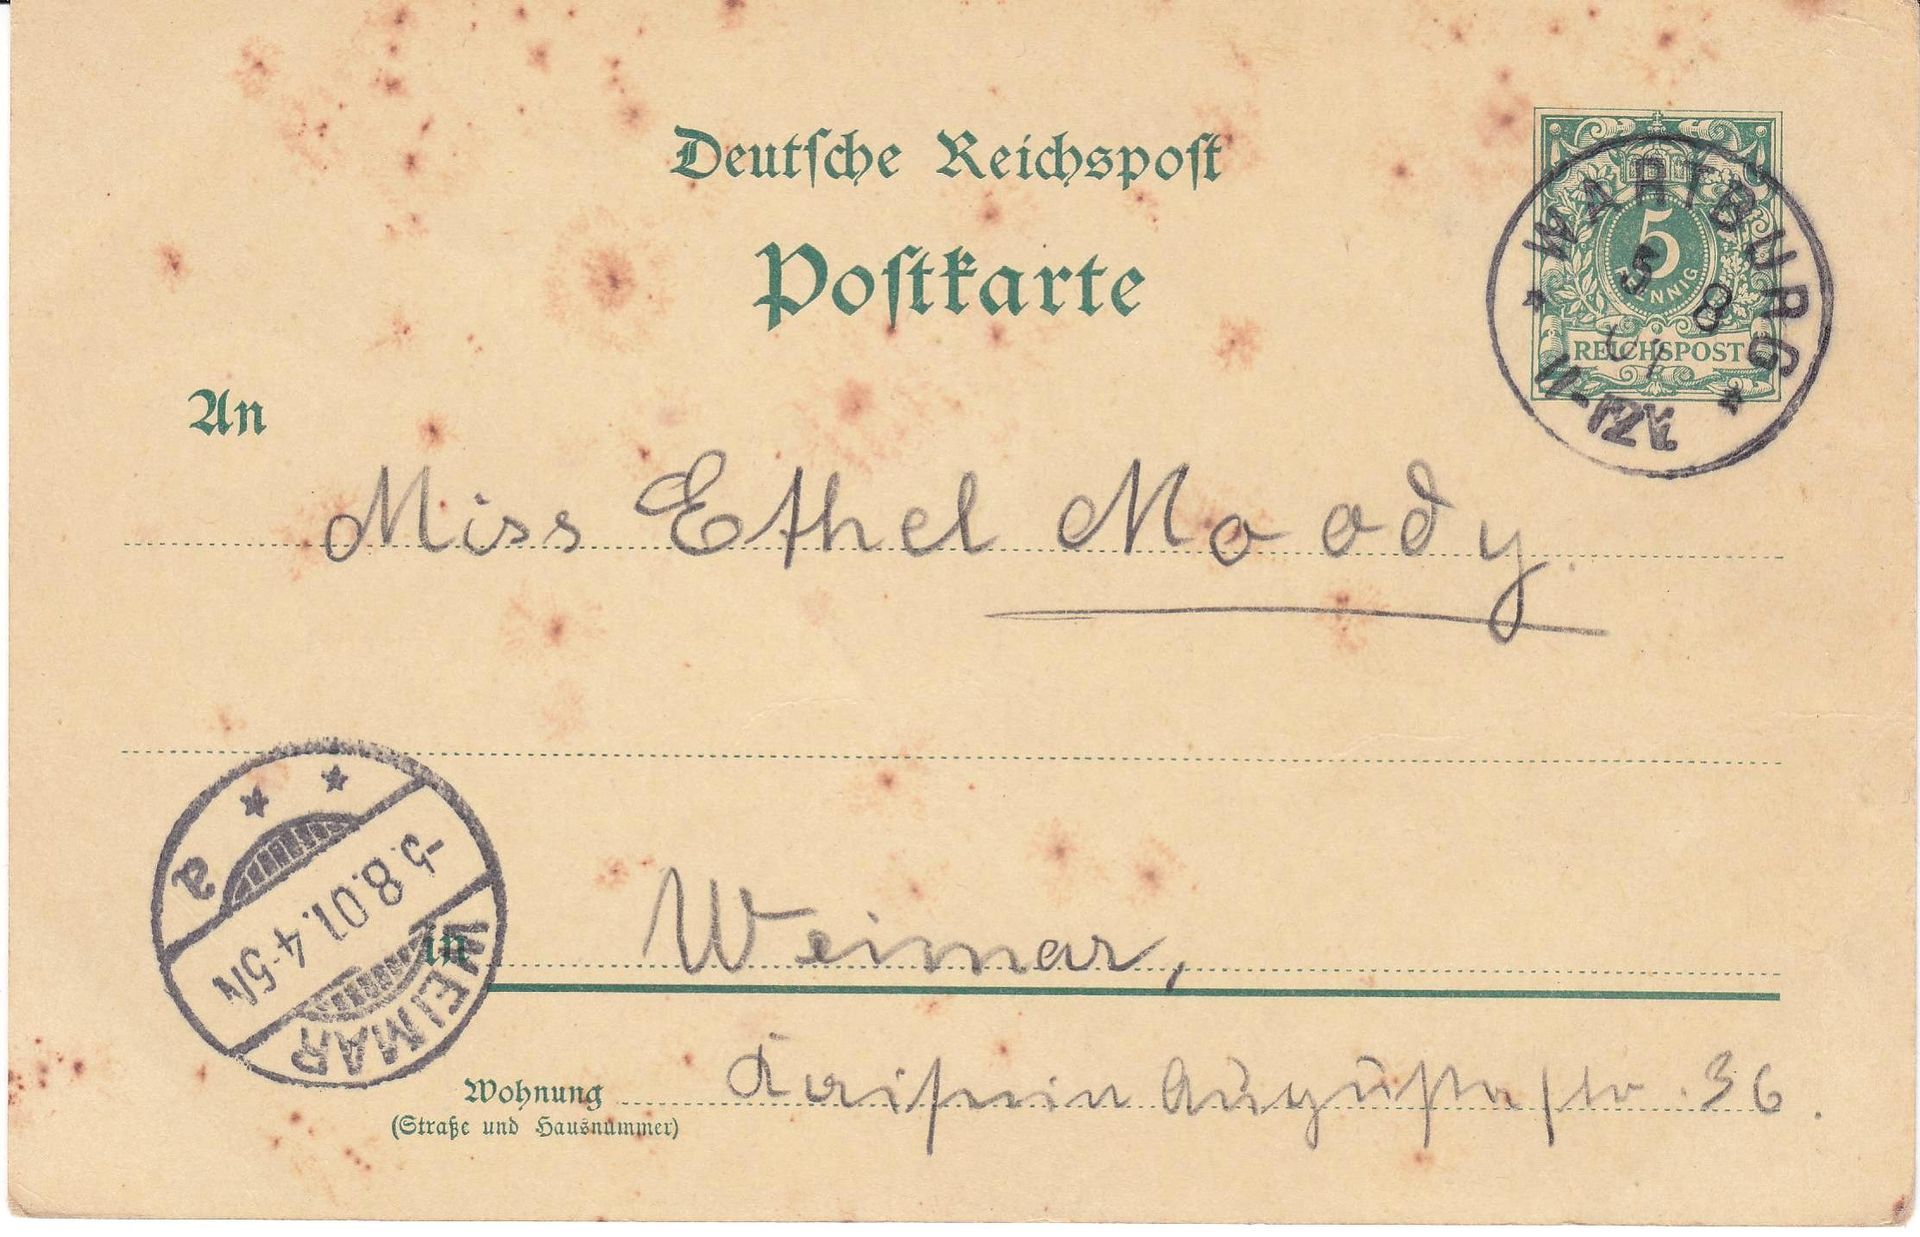 Deutsche Reichspost
Postkarte
5
PFENNIG
REICHSPOST
WARTBURG
5 8
01
11-12V
An
Miss Ethel Moody.
in Weimar,
WEIMAR
-5.8.01. 4-5N
a
Wohnung Kaiserin Augustastr. 36.
(Straße und Hausnummer)